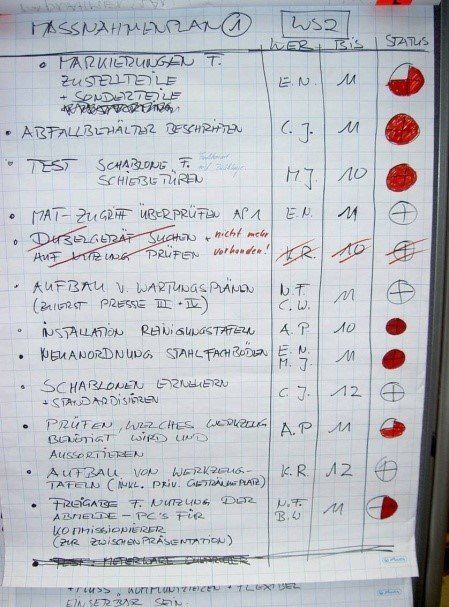 MASSNAHMENPLAN 1 WS2
WER BIS STATUS
• MARKIERUNGEN F. ZUSTELLTEILE
+ SONDERTEILE E.N. 11
• ABFALLBEHÄLTER BESCHRIFTEN C.J. 11
• TEST SCHABLONE F.
SCHIEBETÜREN M.J. 10
• MAT-ZUGRIFF ÜBERPRÜFEN AP1 E.N. 11
• DÜBELGERÄT SUCHEN + nicht mehr
AUF NUTZUNG PRÜFEN vorhanden! K.R. 10
• AUFBAU V. WARTUNGSPLÄNEN N.F
(ZUERST PRESSE III + IV) C.W. 11
• INSTALLATION REINIGUNGSTAFELN A.P 10
• NEUANORDNUNG STAHLFACHBÖDEN E.N.
M.J. 11
• SCHABLONEN ERNEUERN
+ STANDARDISIEREN C.J. 12
• PRÜFEN, WELCHES WERKZEUG
BENÖTIGT WIRD UND
AUSSORTIEREN A.P 11
• AUFBAU VON WERKZEUG-
TAFELN (INKL. PRIV. GETRÄNKEPLATZ) K.R. 12
• FREIGABE F. NUTZUNG DER
ABMELDE-PC'S FÜR
KOMMISSIONIERER
(ZUR ZWISCHENPRÄSENTATION) N.F.
B.W 11
+ FLUSS, KOMMUNIZIEREN + FLEXIBEL
EINSETZBAR SEIN.